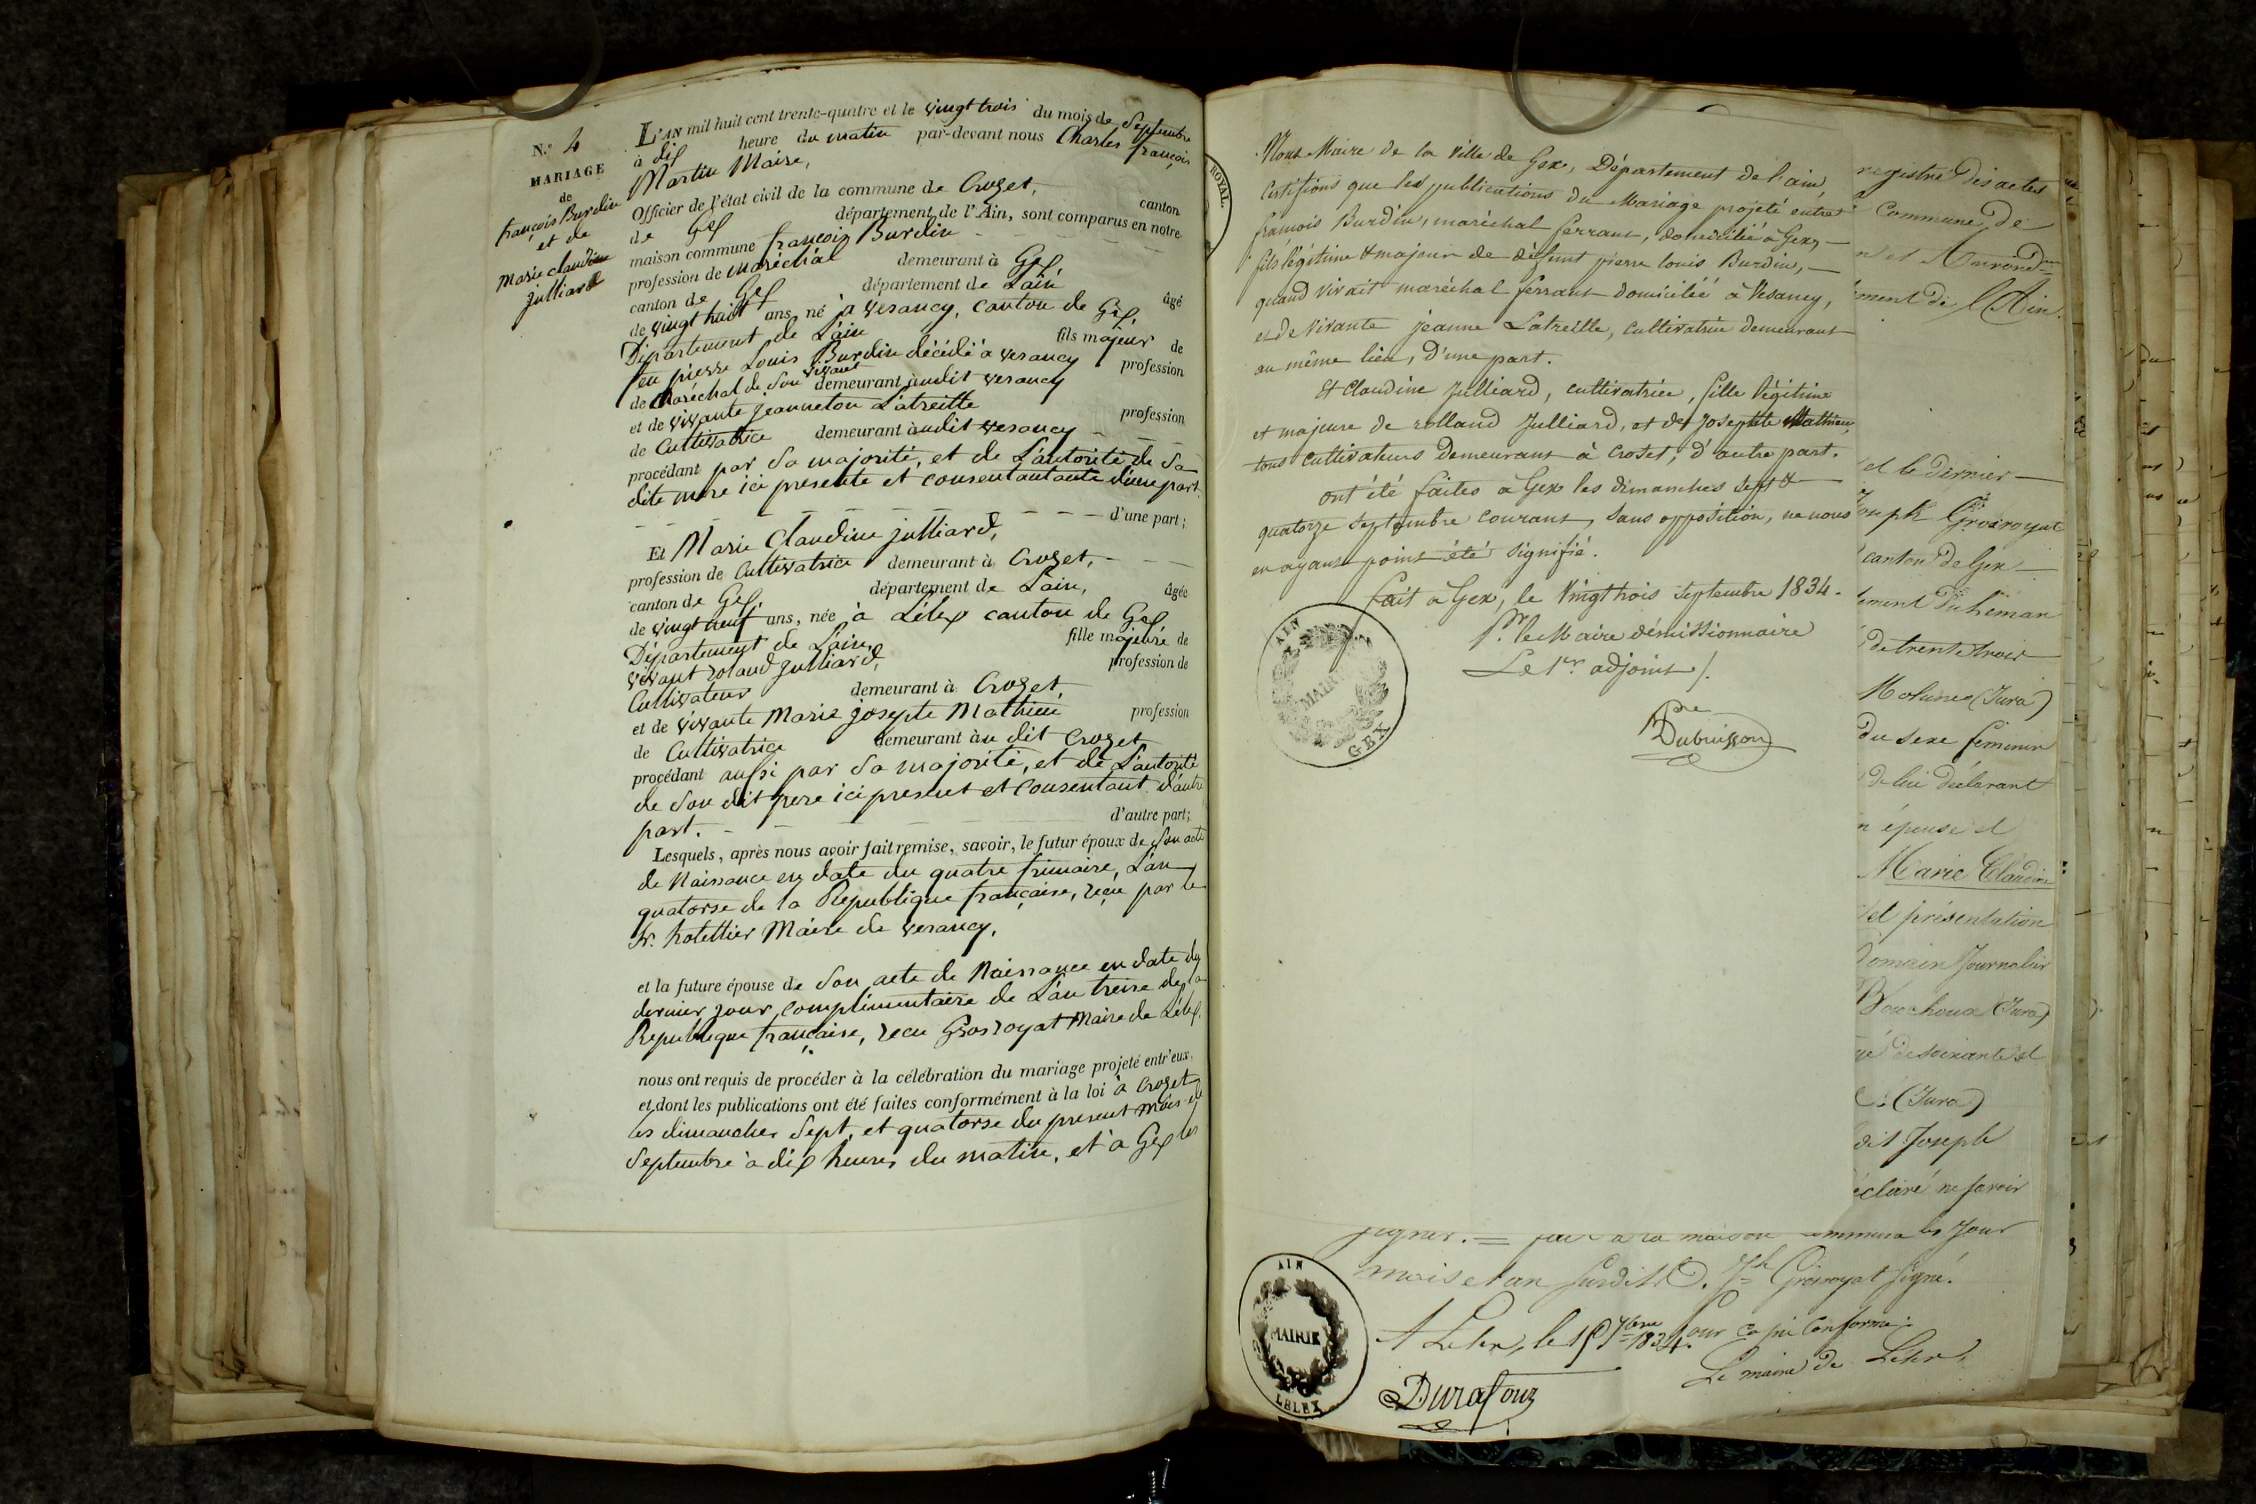 N.° 4
MARIAGE
de
françois Burdin
et de
Marie claudine
julliard
L'AN mil huit cent trente-quatre et le vingt trois du mois de Septembre
à dix heure du matin par-devant nous Charles françois
Martin Maire,
Officier de l'état civil de la commune de Crozet, canton
de Gex département de l'Ain, sont comparus en notre
maison commune françois Burdin
profession de maréchal demeurant à Gex
canton de Gex département de L'ain âgé
de vingt huit ans, né à Vesancy, canton de Gex,
Département de L'ain fils majeur de
feu pierre Louis Burdin décédé à vesancy profession
de Maréchal de son vivant demeurant audit vesancy
et de vivante jeanneton Latreille profession
de Cultivatrice demeurant audit vesancy
procédant par sa majorité, et de L'autorité de sa
dite mere ici presente et consentantante d'une part.
d'une part;
Et Marie Claudine julliard,
profession de Cultivatrice demeurant à Crozet,
canton de Gex, département de L'ain, âgée
de vingt neuf ans, née à Lélex canton de Gex
Département de L'ain, fille majeure de
vivant roland Julliard, profession de
Cultivateur demeurant à Crozet,
et de vivante Marie josephte Mathieu profession
de Cultivatrice demeurant au dit Crozet
procédant aussi par sa majorité, et de L'autorité
de son dit pere ici present et consentant d'autre
part. d'autre part;
Lesquels, après nous avoir fait remise, savoir, le futur époux de son acte
de Naissance en date du quatre frimaire, L'an
quatorse de la Republique française, reçu par le
Sr. hotellier Maire de vesancy,
et la future épouse de son acte de Naissance en date du
dernier jour complémentaire de L'an treise de la
Republique française, recu Grosroyat Maire de Lélex.
nous ont requis de procéder à la célébration du mariage projeté entr'eux,
et dont les publications ont été faites conformément à la loi à Crozet
les dimanches Sept, et quatorse du present mois de
Septembre à dix heures du matin, et à Gex les
ROYAL.
Nous Maire de la Ville de Gex, Département de l'ain,
Certifions que les publications du Mariage projeté entre
françois Burdin, maréchal ferrant, domicilié à Gex,
fils légitime & majeur de défunt pierre louis Burdin,
quand vivait maréchal ferrant domicilié à Vesancy,
et de vivante jeanne Latreille, cultivatrice demeurant
au même lieu, d'une part.
Et Claudine Julliard, cultivatrice, fille légitime
et majeure de rolland Julliard, et de Josephte Mathieu,
tous cultivateurs demeurant à Crozet, d'autre part.
ont été faites à Gex les dimanches sept &
quatorze septembre courant, sans opposition, ne nous
en ayant point été signifié.
fait à Gex, le Vingt trois septembre 1834.
Pr. le Maire démissionnaire
Le 1er. adjoint /.
Dubuisson
AIN
MAIRIE
GEX
registre des actes
Commune de
et Arrond
ment de l'Ain.
et le dernier
Joseph Grosroyat
canton de Gex
de trente trois
Molunes (Jura)
du sexe féminin
de lui déclarant
épouse et
Marie Claudine
et présentation
Romain Journalier
Bouchoux (Jura)
de soixante et
(Jura)
dit Joseph
déclaré ne savoir
signer. = fait à la maison commune les Jour
mois et an susdits. Jh Grosroyat signé.
Pour copie Conforme:
A Lelex, le 15 7bre 1834.
Le maire de Lélex,
Durafour
AIN
MAIRIE
LELEX